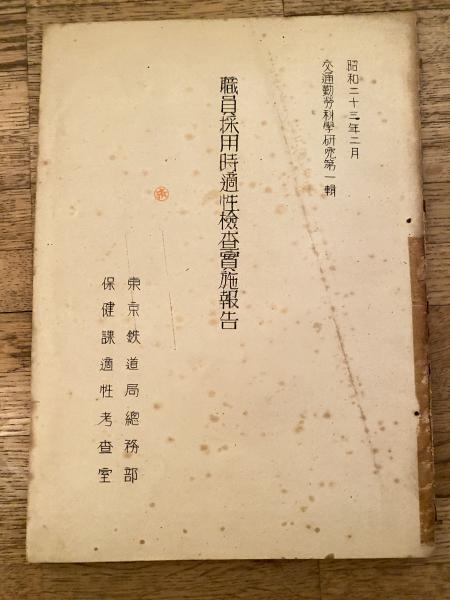 昭和二十三年二月
交通勤労科學研究第一輯
職員採用時適性檢査實施報告
東京鉄道局總務部
保健課適性考査室